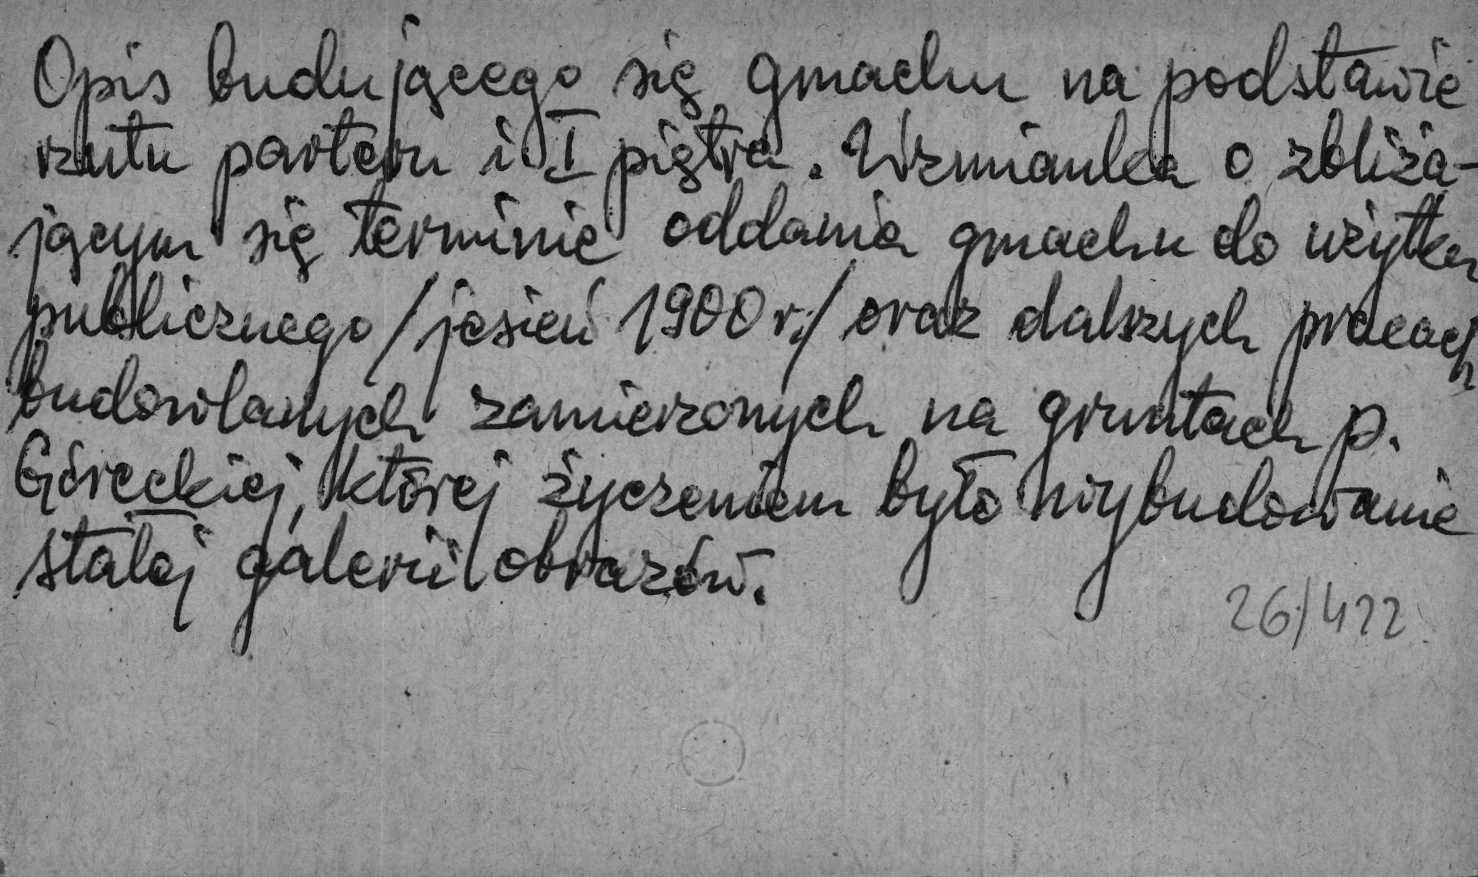 Opis budującego się gmachu na podstawie
rzutu parteru i I piętra. Wzmianka o zbliża-
jącym się terminie oddania gmachu do użytku
publicznego /jesień 1900 r./ oraz dalszych pracach
budowlanych zamierzonych na gruntach p.
Góreckiej, której życzeniem było wybudowanie
stałej galerii obrazów.
26/422